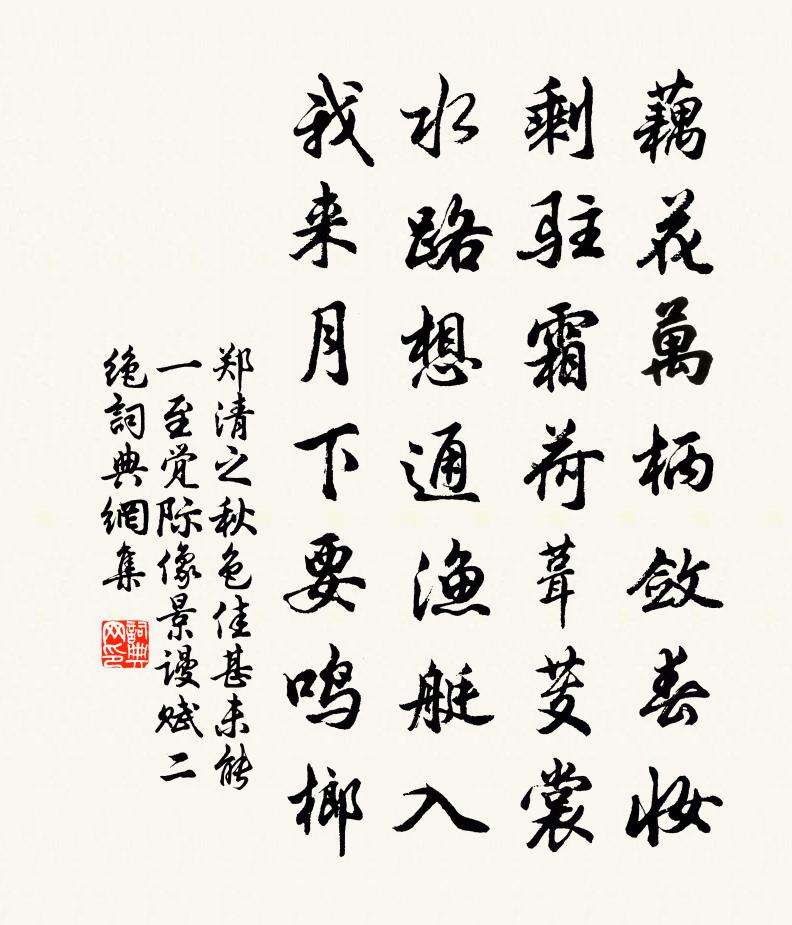 藕花萬柄斂春妝
剩駐霜荷葺芰裳
水路想通漁艇入
我来月下要鸣榔
郑清之秋色佳甚未能
一至觉际像景谩赋二
绝詞典網集
詞典网印